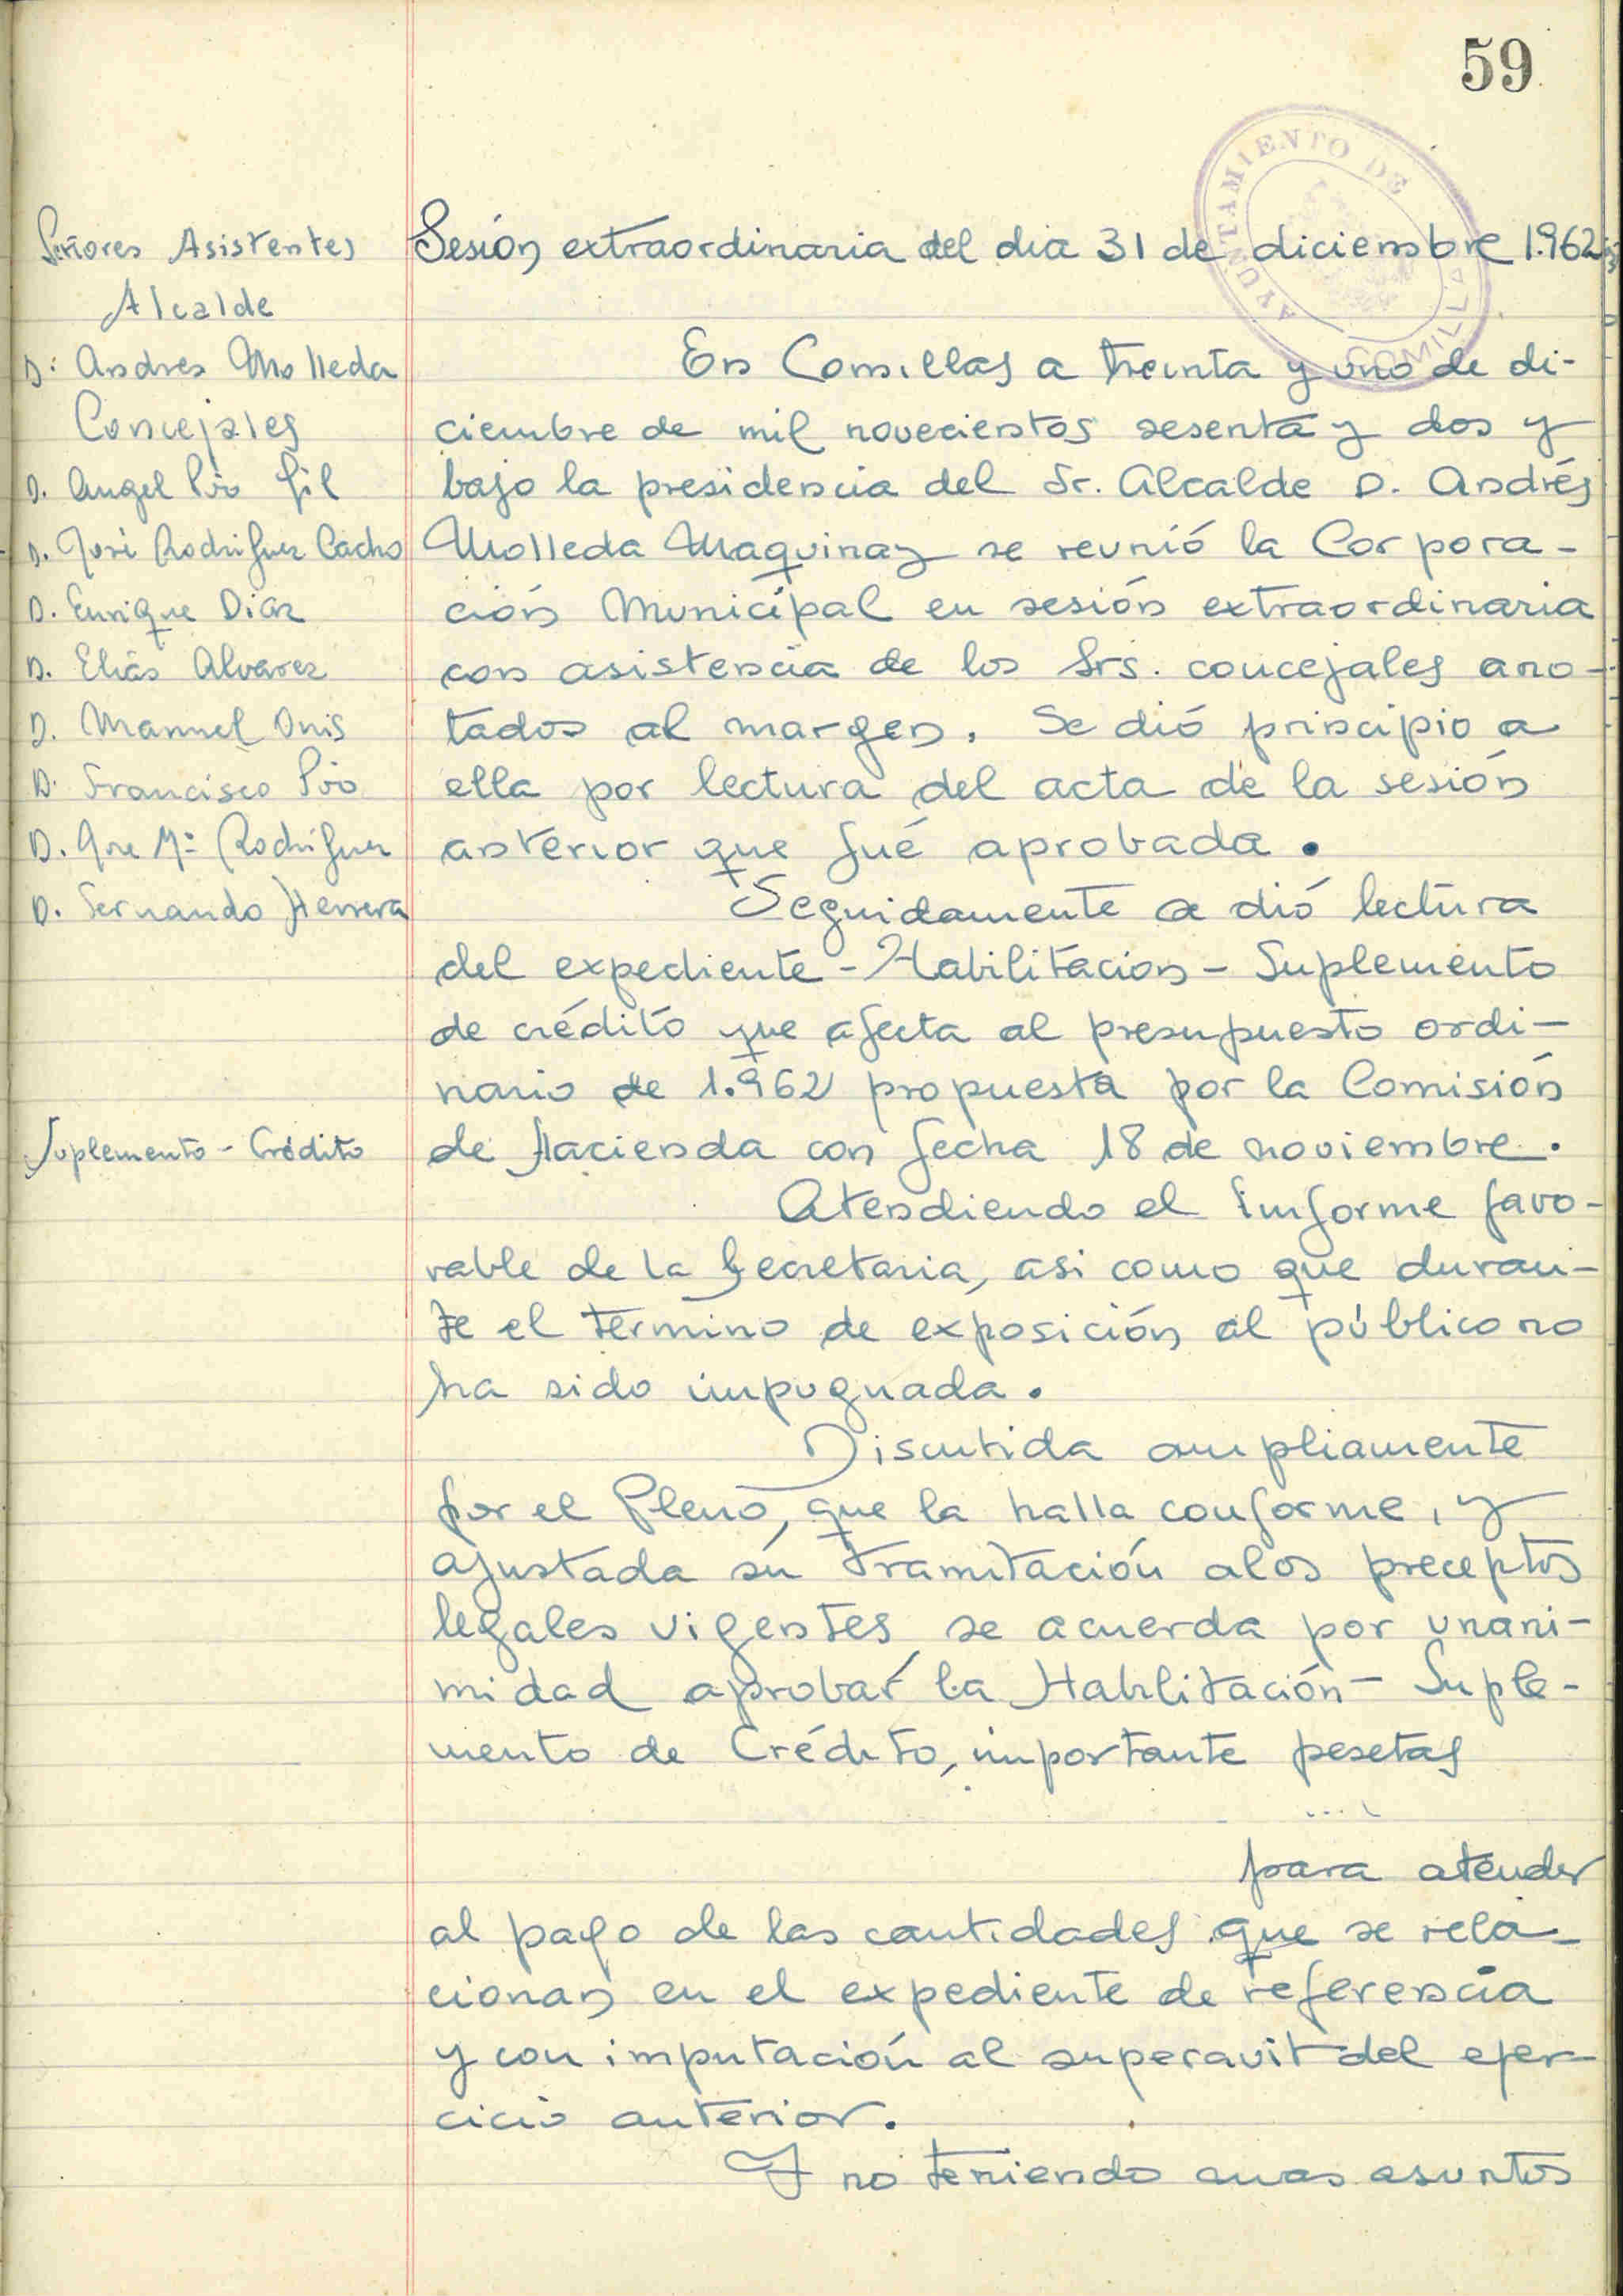 59
AYUNTAMIENTO DE
COMILLAS
Señores Asistentes
Alcalde
D. Andres Molleda
Concejales
D. Angel Pío Gil
D. José Rodriguez Cacho
D. Enrique Diaz
D. Elías Alvarez
D. Manuel Onis
D. Francisco Pío
D. Jose Mª Rodriguez
D. Fernando Herrera
Suplemento - Crédito
Sesión extraordinaria del dia 31 de diciembre 1.962
En Comillas a treinta y uno de di-
ciembre de mil novecientos sesenta y dos y
bajo la presidencia del Sr. Alcalde D. Andrés
Molleda Maquinay se reunió la Corpora-
ción Municipal en sesión extraordinaria
con asistencia de los Srs. concejales ano-
tados al margen. Se dió principio a
ella por lectura del acta de la sesión
anterior que fué aprobada.
Seguidamente se dió lectura
del expediente - Habilitacion - Suplemento
de crédito que afecta al presupuesto ordi-
nario de 1.962 propuesta por la Comisión
de Hacienda con fecha 18 de noviembre.
Atendiendo el informe favo-
rable de la Secretaria, asi como que duran-
te el termino de exposición al público no
ha sido impugnada.
Discutida ampliamente
por el Pleno, que la halla conforme, y
ajustada su tramitación a los preceptos
legales vigentes se acuerda por unani-
midad aprobar la Habilitación - Suple-
mento de Crédito, importante pesetas
para atender
al pago de las cantidades que se rela-
cionan en el expediente de referencia
y con imputación al superavit del ejer-
cicio anterior.
Y no teniendo mas asuntos